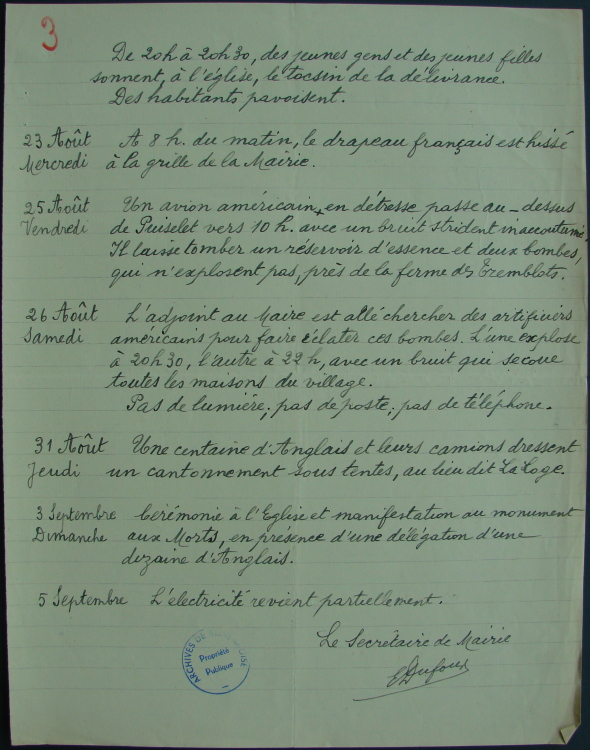 3
De 20h à 20h30, des jeunes gens et des jeunes filles
sonnent, à l'église, le tocsin de la délivrance.
Des habitants pavoisent.
23 Août A 8 h. du matin, le drapeau français est hissé
Mercredi à la grille de la Mairie.
25 Août Un avion américain, en détresse passe au-dessus
Vendredi de Puiselet vers 10 h. avec un bruit strident inaccoutumé.
Il laisse tomber un réservoir d'essence et deux bombes,
qui n'explosent pas, près de la ferme des Tremblots.
26 Août L'adjoint au Maire est allé chercher des artificiers
Samedi américains pour faire éclater ces bombes. L'une explose
à 20h30, l'autre à 22 h, avec un bruit qui secoue
toutes les maisons du village.
Pas de lumière, pas de poste, pas de téléphone.
31 Août Une centaine d'Anglais et leurs camions dressent
Jeudi un cantonnement sous tentes, au lieu dit La Loge.
3 Septembre Cérémonie à l'Eglise et manifestation au monument
Dimanche aux Morts, en présence d'une délégation d'une
dizaine d'Anglais.
5 Septembre L'électricité revient partiellement.
Le Secrétaire de Mairie
E Dufour
ARCHIVES DE
Propriété
Publique